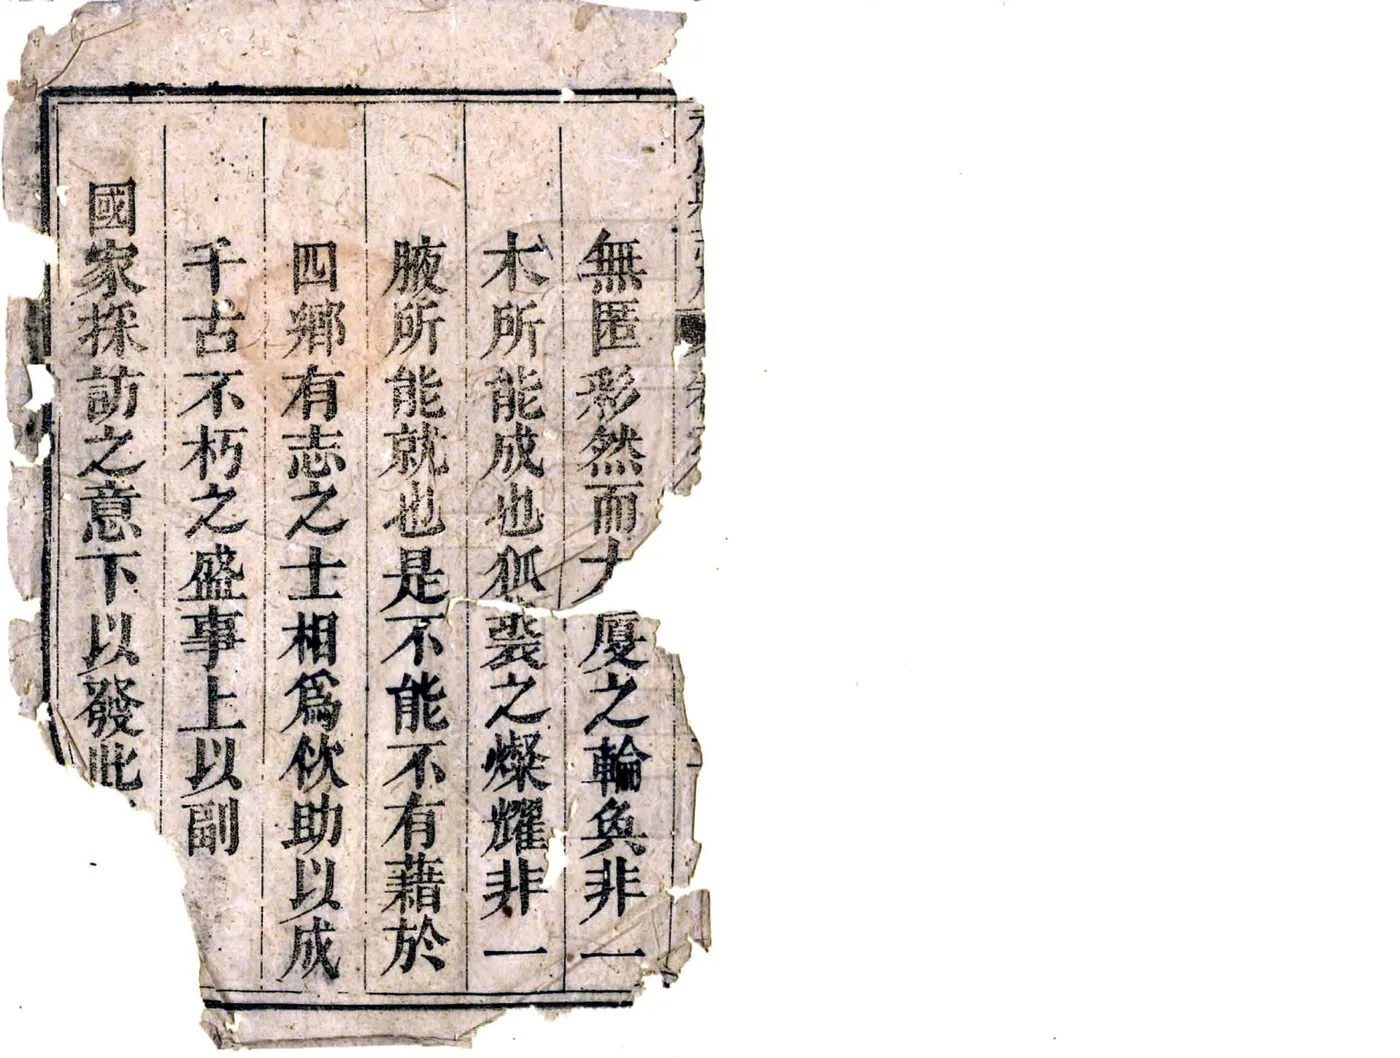 無匿彩然而大厦之輪奐非一
木所能成也狐裘之燦耀非一
腋所能就也是不能不有藉於
四鄉有志之士相爲佽助以成
千古不朽之盛事上以副
國家採訪之意下以發此